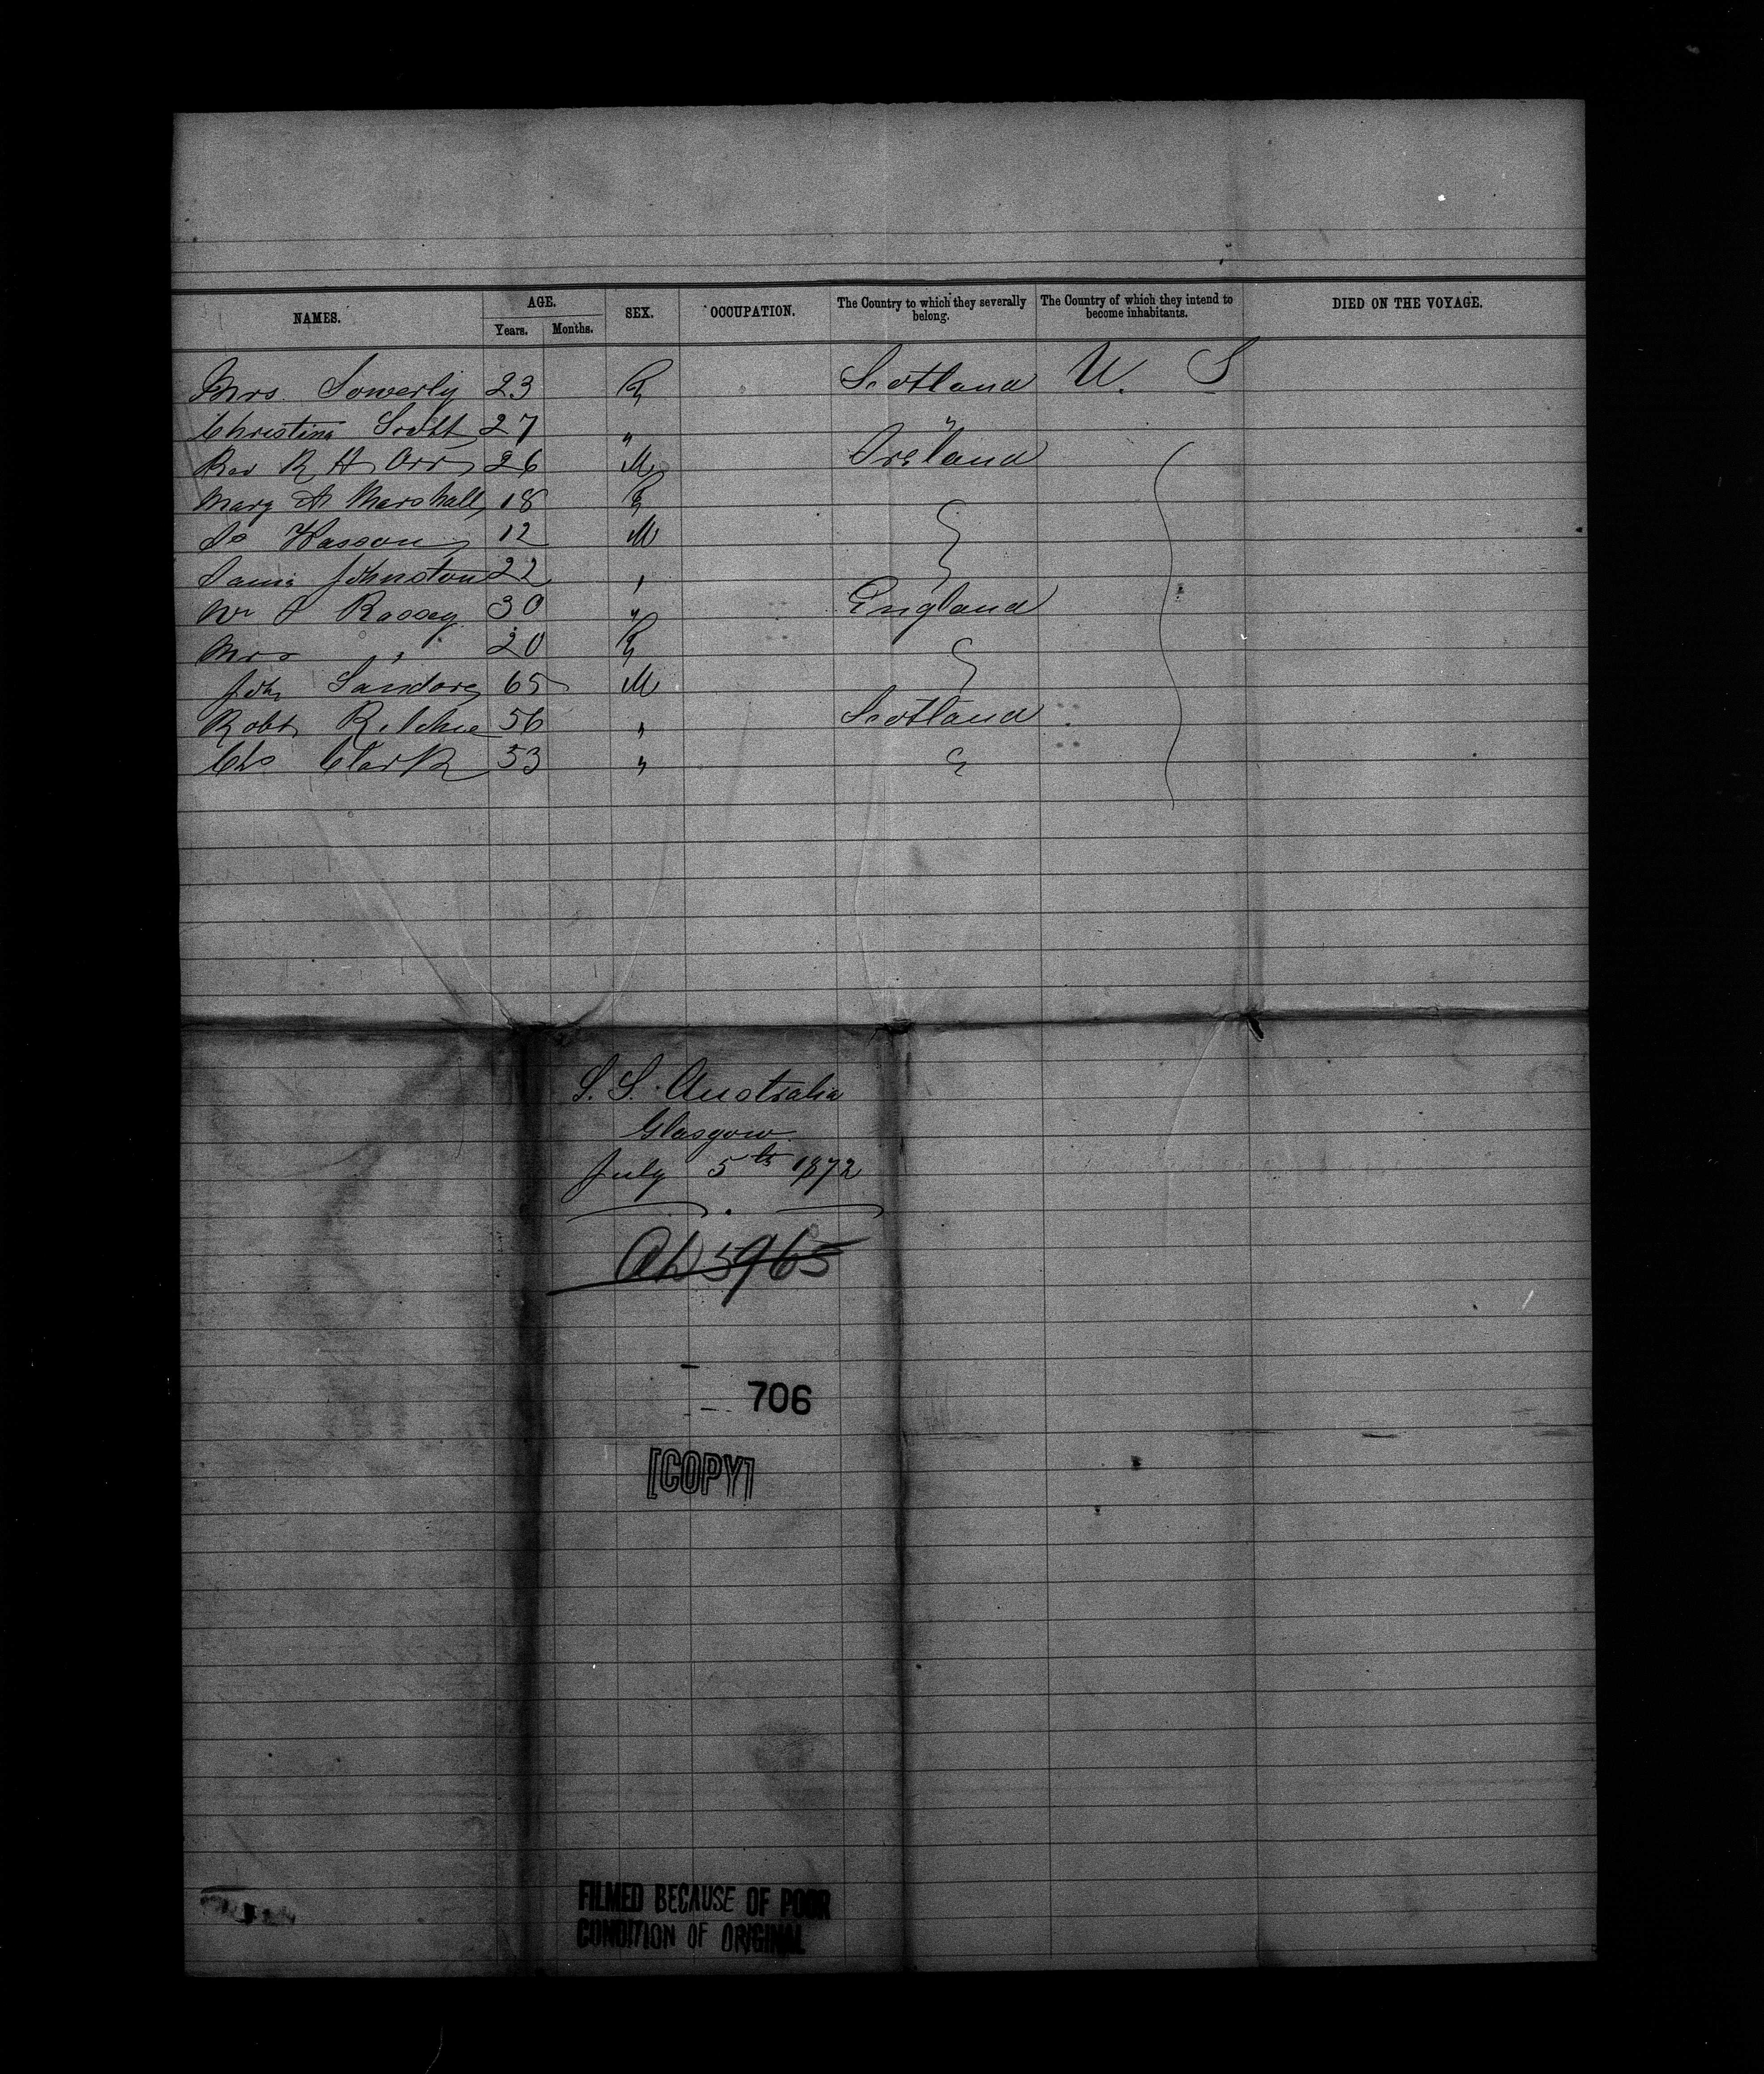 NAMES. AGE. SEX. OCCUPATION. The Country to which they severally belong. The Country of which they intend to become inhabitants. DIED ON THE VOYAGE.
Years. Months.
Mrs. Sowerby 23 F Scotland U. S
Christina Scott 27 " "
Rev R H Orr 26 M Ireland
Mary A Marshall 18 F
Wasson 12 M
Johnston 22 "
30 " England
Mrs " 20 F
John Sandors 65 M
Robt Ritchie 56 " Scotland
Chs Clark 53 " "
S. S. Australia
Glasgow
July 5th 1872
5965
706
[COPY]
FILMED BECAUSE OF POOR
CONDITION OF ORIGINAL